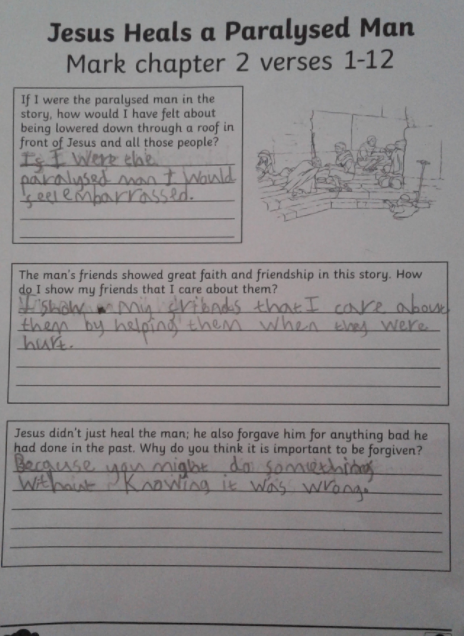 Jesus Heals a Paralysed Man
Mark chapter 2 verses 1-12
If I were the paralysed man in the
story, how would I have felt about
being lowered down through a roof in
front of Jesus and all those people?
If I were the
paralysed man I would
feel embarrassed.
The man's friends showed great faith and friendship in this story. How
do I show my friends that I care about them?
I show my friends that I care about
them by helping them when they were
hurt.
Jesus didn't just heal the man; he also forgave him for anything bad he
had done in the past. Why do you think it is important to be forgiven?
Because you might do something
without knowing it was wrong.